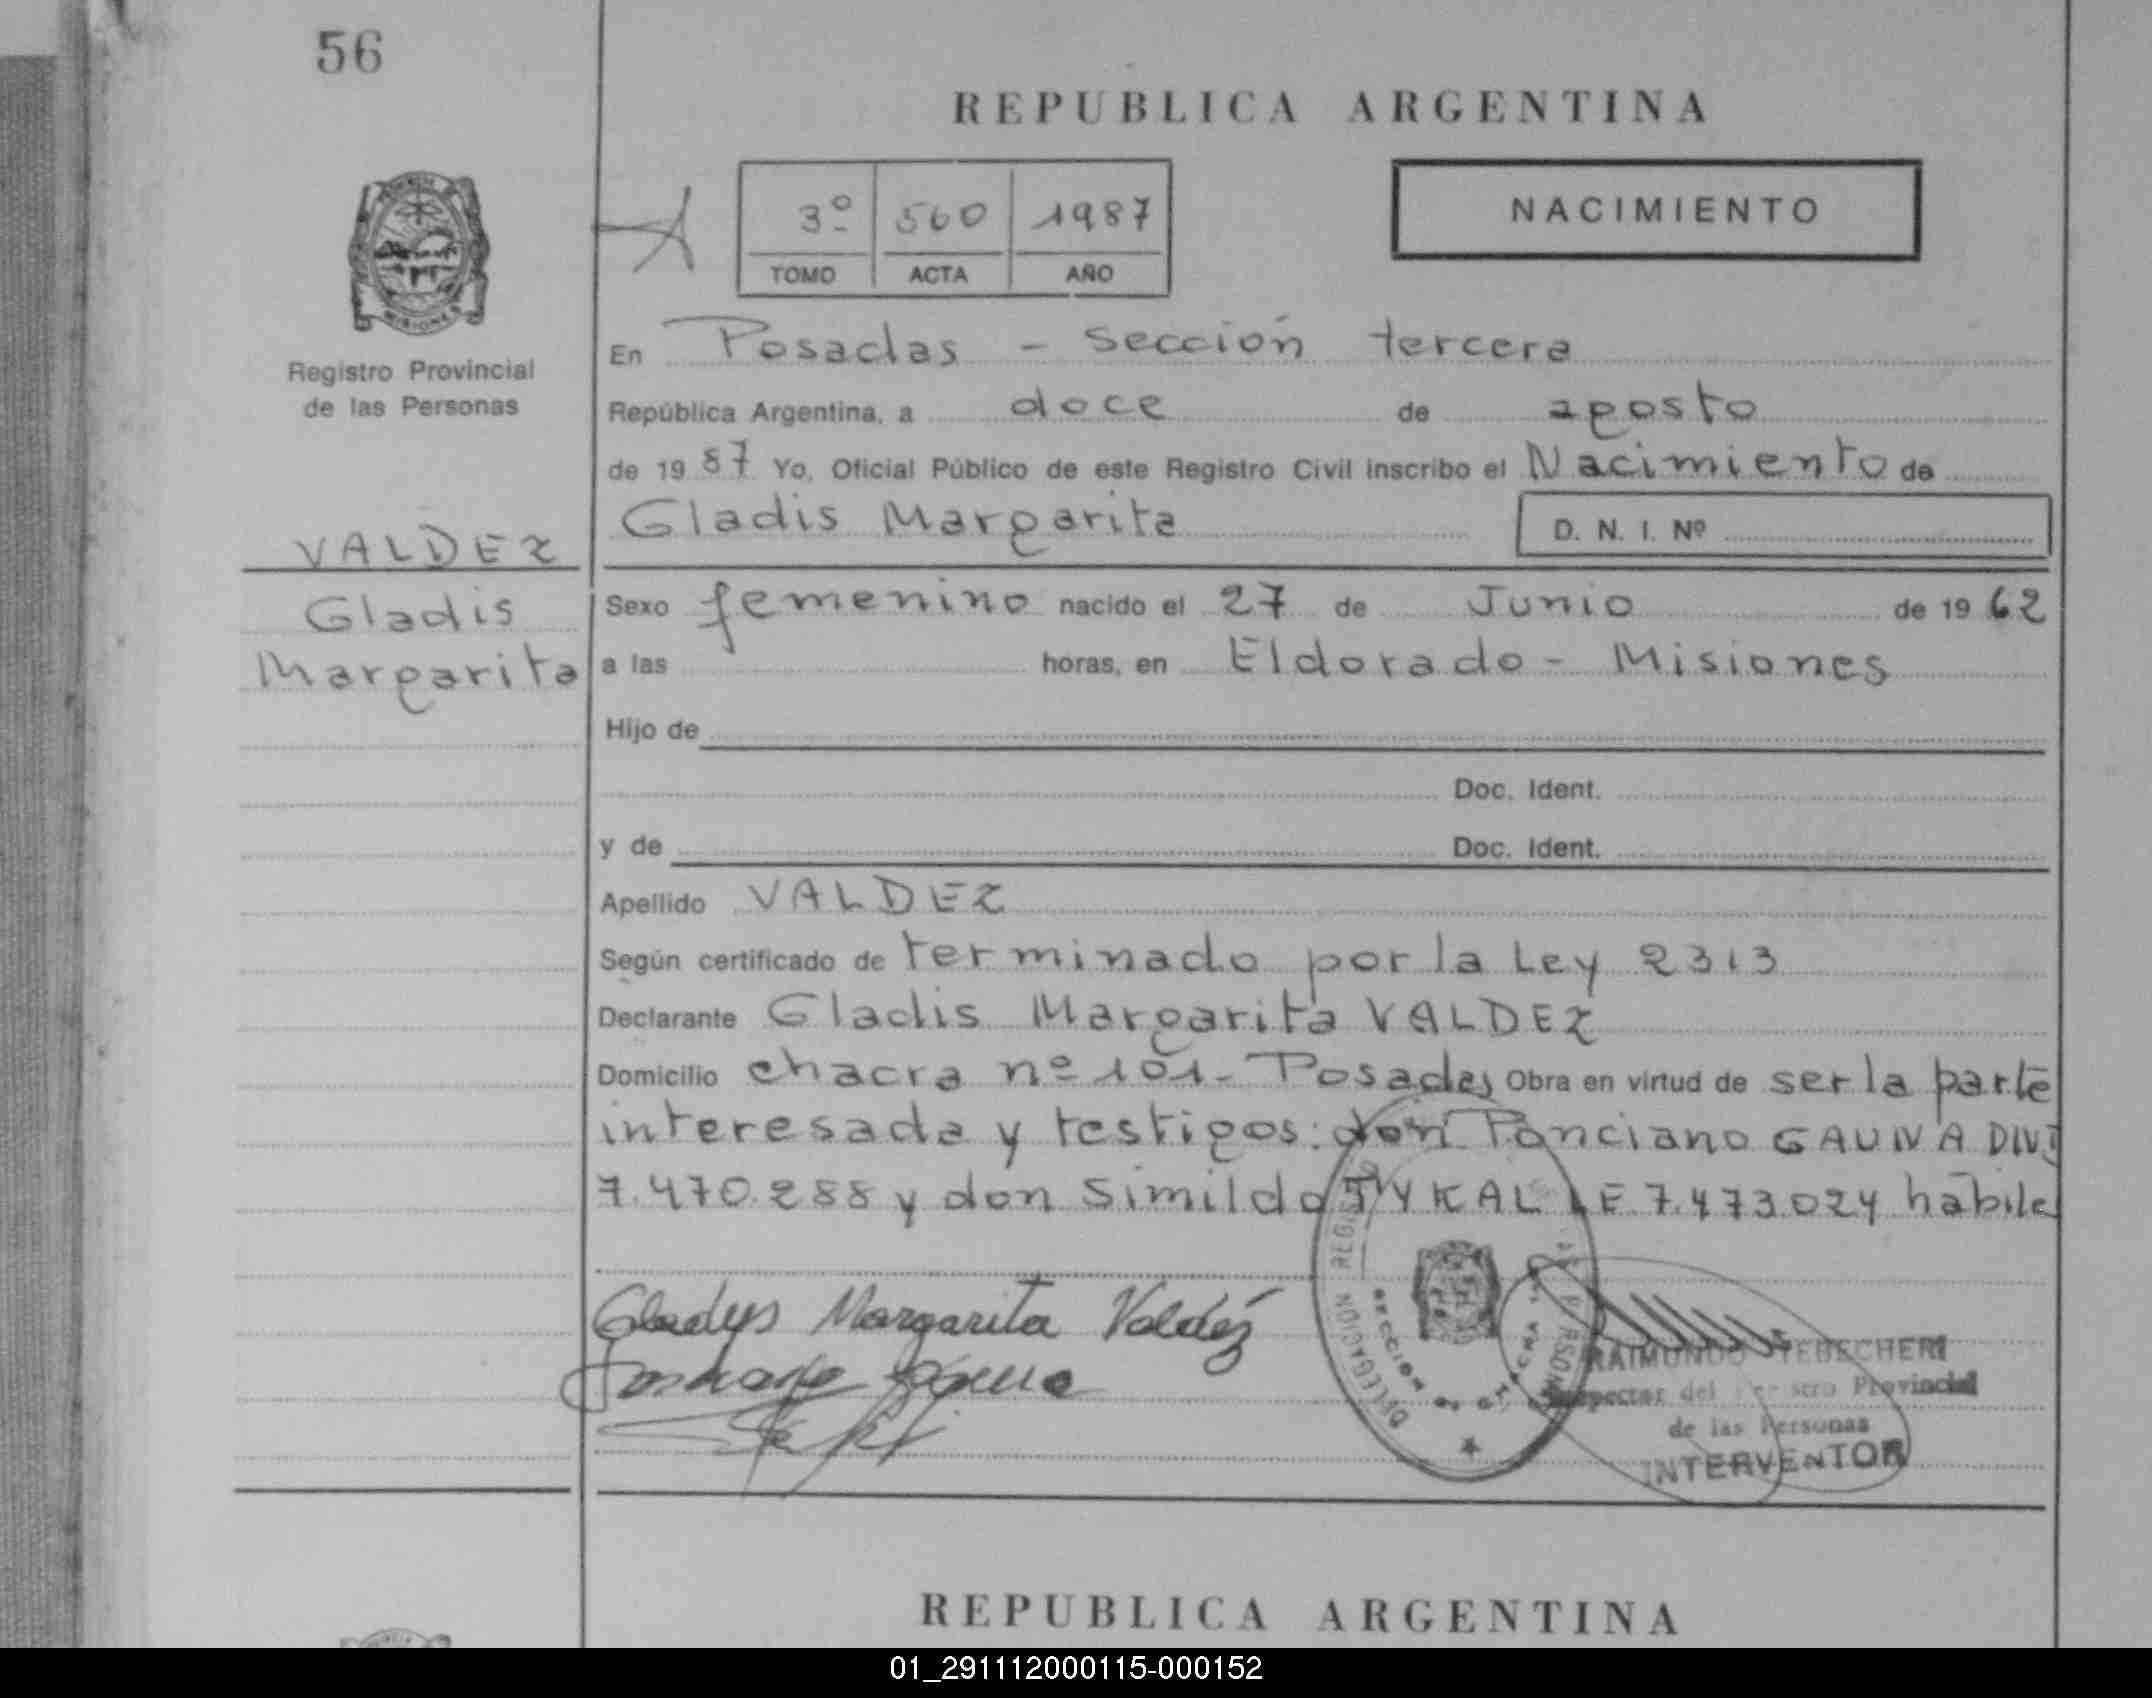 56
REPUBLICA ARGENTINA
3º 560 1987
TOMO ACTA AÑO
NACIMIENTO
MISIONES
Registro Provincial
de las Personas
En Posadas - sección tercera
República Argentina, a doce de agosto
de 19 87 Yo, Oficial Público de este Registro Civil inscribo el Nacimiento de
Gladis Margarita
D. N. I. Nº
VALDEZ
Gladis
Margarita
Sexo femenino nacido el 27 de Junio de 19 62
a las horas, en Eldorado - Misiones
Hijo de
Doc. Ident.
y de Doc. Ident.
Apellido VALDEZ
Según certificado de terminado por la Ley 2313
Declarante Gladis Margarita VALDEZ
Domicilio chacra nº 101- Posadas Obra en virtud de ser la parte
interesada y testigos: don Ponciano GAUNA DNI
7.470.288 y don Simildo TYKAL LE 7.473.024 hábile
Gladys Margarita Valdéz
DELEGACION REGIS
SECCION
RAIMUNDO TEBECHERI
Inspector del Provincial
de las Personas
INTERVENTOR
REPUBLICA ARGENTINA
01_291112000115-000152